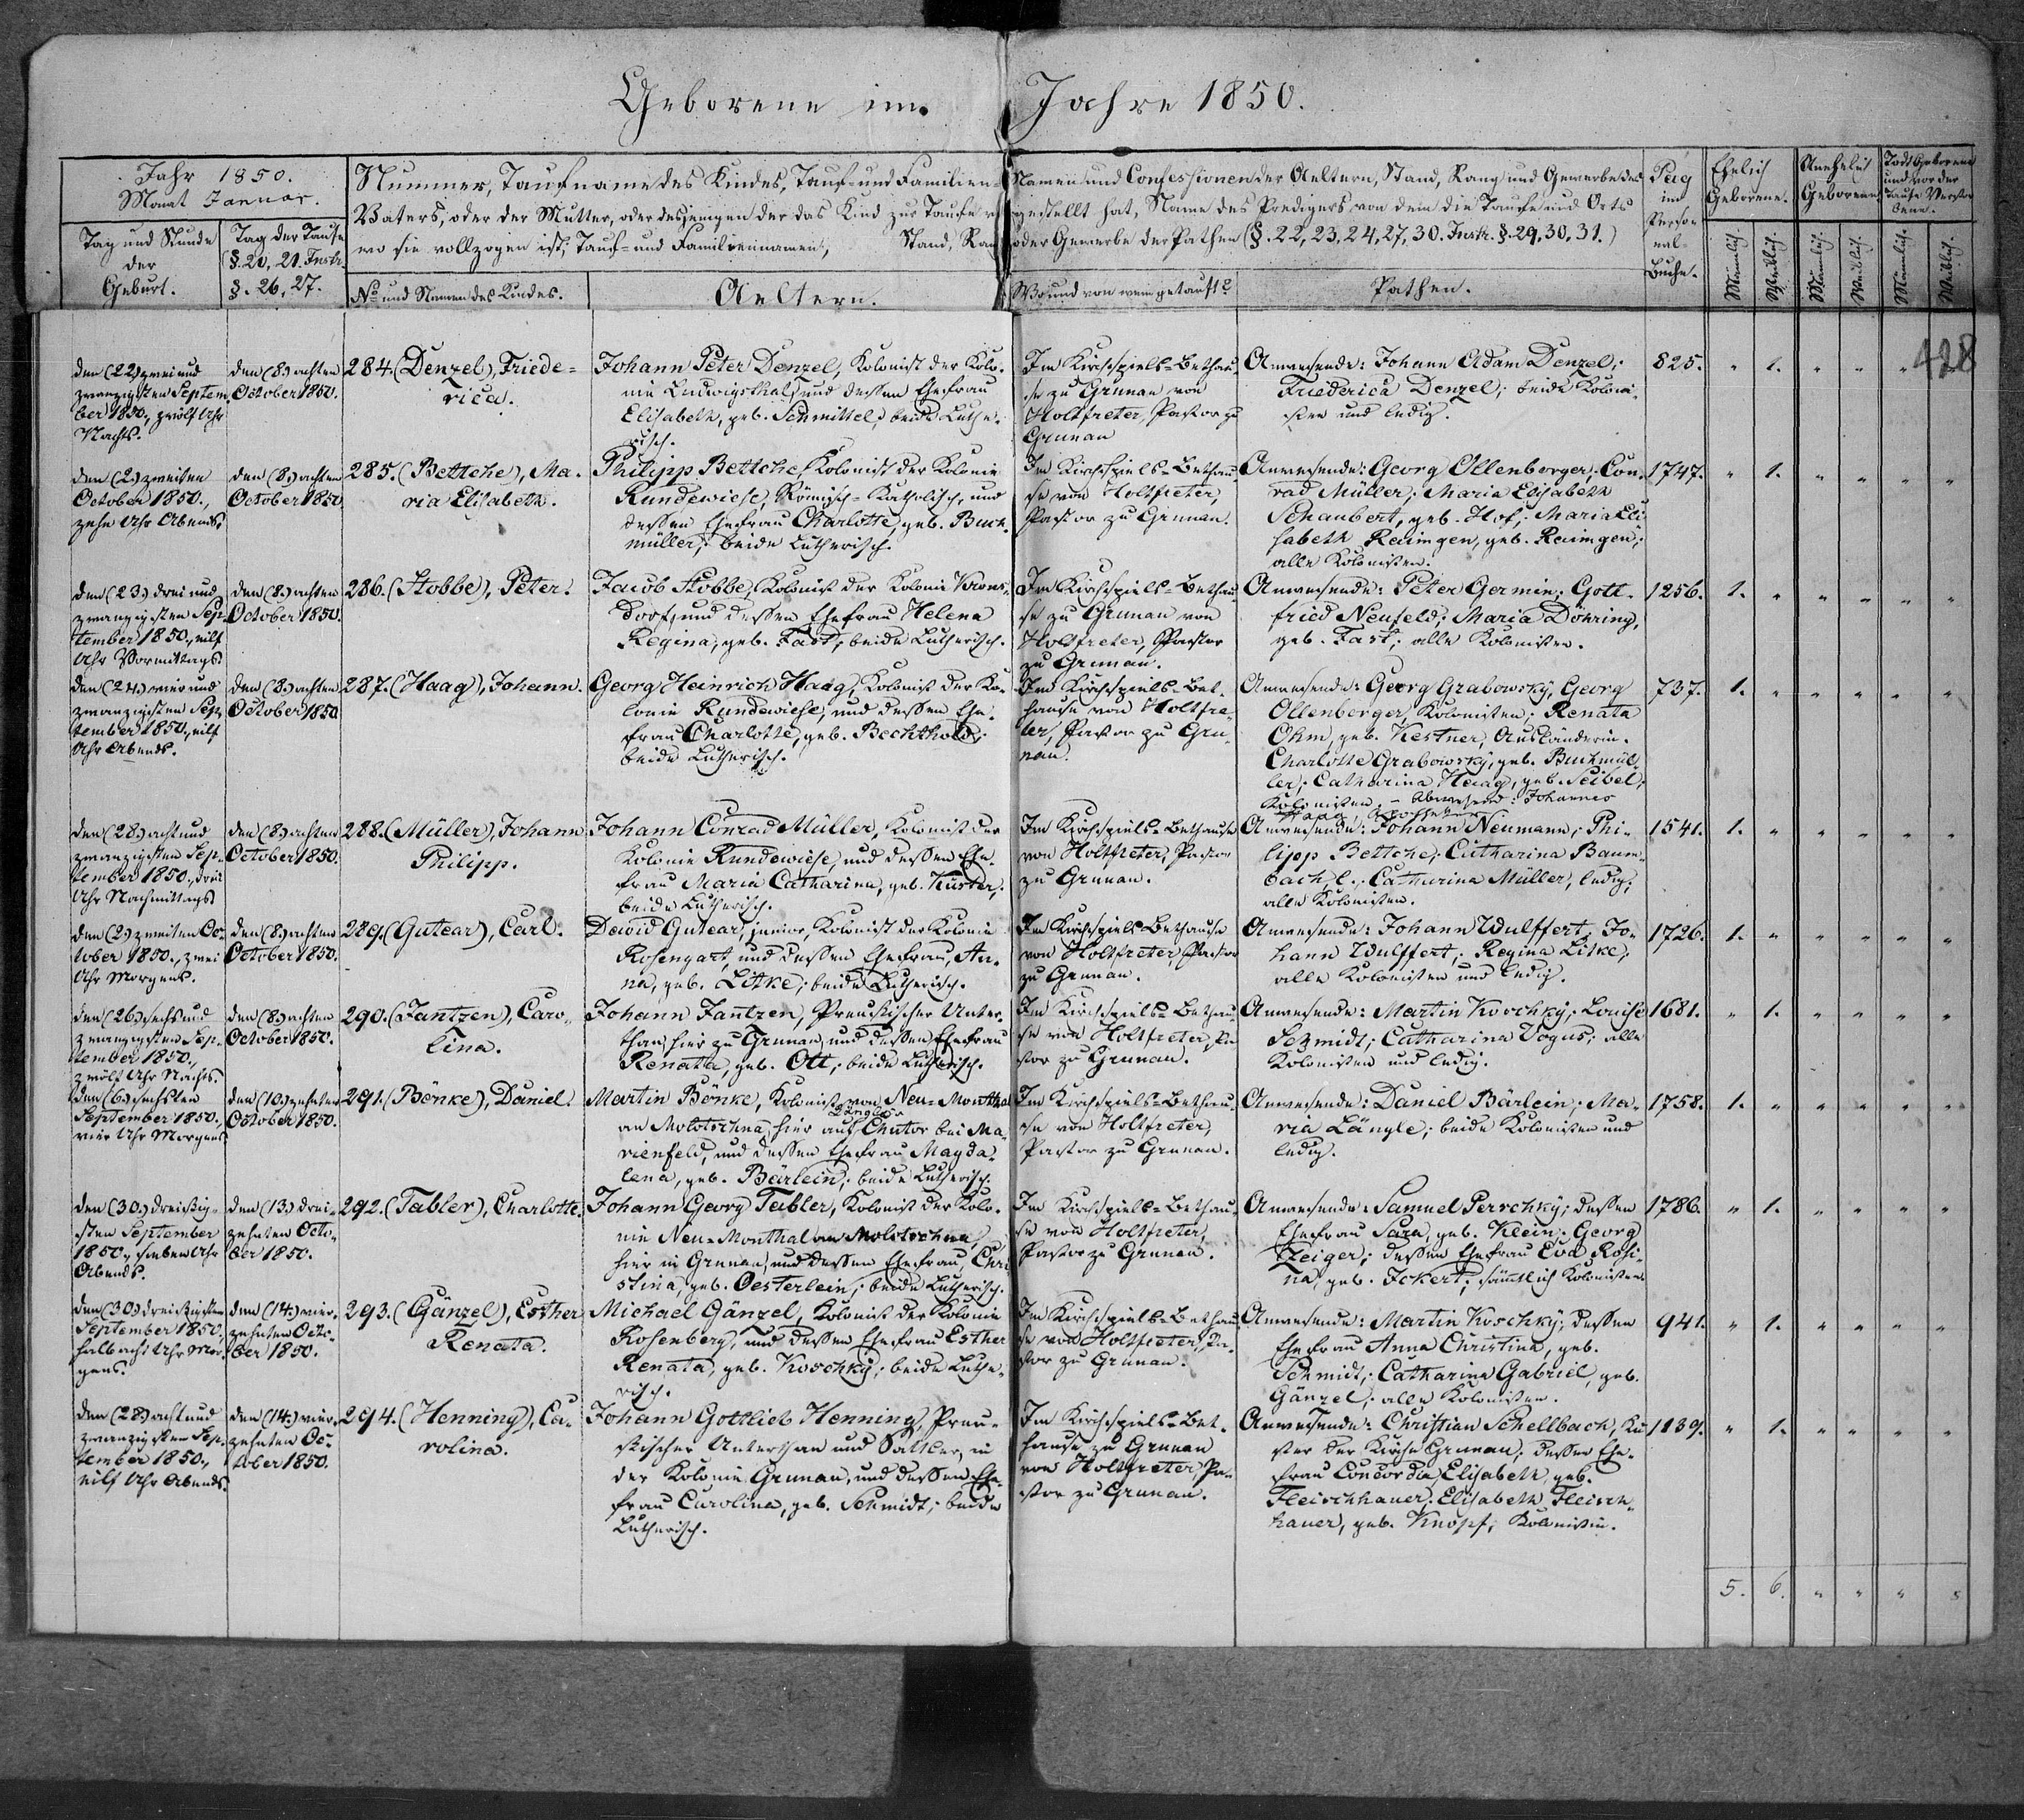 Geborene im Jahre 1850.
Jahr 1850.
Monat Januar.
Tag und Stunde
der
Geburt.
Tag der Taufe
(§. 20, 21. Instr.
§. 26, 27.
Nummer, Taufname des Kindes, Tauf- und Familien-
Vaters, oder der Mutter, oder desjenigen der das Kind zur Taufe
wo sie vollzogen ist, Tauf- und Familiennamen, Stand, Rang
No und Namen des Kindes.
Aeltern.
Namen und Confessionen der Aeltern, Stand, Rang und Gewerbe des
gestellt hat, Name des Predigers von dem die Taufe und Orts
oder Gewerbe der Pathen (§. 22, 23, 24, 27, 30. Instr. §. 29, 30, 31.)
Wo und von wem getauft?
Pathen.
Pag
im
Perso
nal-
Buche.
Ehelich
Geborene.
Unehelich
Geborene
Todtgeborene
und vor der
Taufe Verstor
bene.
Männlich.
Weiblich.
Männlich.
Weiblich.
Männlich.
Weiblich.
428
den (22) zwei und
zwanzigsten Septem
ber 1850, zwölf Uhr
Nachts.
den (8.) achten
October 1850.
284. (Denzel), Friede-
rica.
Johann Peter Denzel, Kolonist der Kolo-
nie Ludwigsthal, und dessen Ehefrau
Elisabeth, geb. Schmittel; beide Luthe-
risch.
Im Kirchspiels-Bethau
se zu Grunau von
Holtfreter, Pastor zu
Grunau
Anwesende: Johann Adam Denzel;
Friederica Denzel; beide Koloni-
sten und ledig.
825. " 1. " " "
den (2.) zweiten
October 1850.,
zehn Uhr Abends.
den (8.) achten
October 1850
285. (Bettche), Ma-
ria Elisabeth.
Philipp Bettche, Kolonist der Kolonie
Rundewiese, Römisch-Katholisch, und
dessen Ehefrau Charlotte, geb. Buch-
müller; beide Lutherisch.
Im Kirchspiels-Bethau
se von Holtfreter,
Pastor zu Grunau.
Anwesende: Georg Ollenberger; Con-
rad Müller; Maria Elisabeth
Schaubert, geb. Hof; Maria Eli
sabeth Reimgen, geb. Reimgen;
alle Kolonisten.
1747. " 1. " " " "
den (23.) drei und
zwanzigsten Sep-
tember 1850., eilf
Uhr Vormittags
den (8.) achten
October 1850.
286. (Stobbe), Peter.
Jacob Stobbe, Kolonist der Kolonie Krons-
dorf, und dessen Ehefrau Helena
Regina, geb. Fast; beide Lutherisch.
Im Kirchspiels-Bethau
se zu Grunau von
Holtfreter, Pastor
zu Grunau.
Anwesende: Peter Germin; Gott-
fried Neufeld; Maria Döhring,
geb. Fast; alle Kolonisten.
1256. 1. " " " " "
den (24.) vier und
zwanzigsten Sep-
tember 1850., eilf
Uhr Abends.
den (8.) achten
October 1850
287. (Haag), Johann.
Georg Heinrich Haag, Kolonist der Ko-
lonie Rundewiese, und dessen Ehe-
frau Charlotte, geb. Bechthold;
beide Lutherisch.
Im Kirchspiels-Bet-
hause von Holtfre-
ter, Pastor zu Gru-
nau.
Anwesende: Georg Grabowsky, Georg
Ollenberger, Kolonisten; Renata
Ohm, geb. Kestner, Ausländerin.
Charlotte Grabowsky, geb. Buchmül-
ler; Catharina Haag, geb. Seibel;
Kolonisten. - Abwesend: Johannes
Haag,
737. 1. " " " " "
den (28.) acht und
zwanzigsten Sep-
tember 1850., drei
Uhr Nachmittags
den (8.) achten
October 1850.
288. (Müller), Johann
Philipp.
Johann Conrad Müller, Kolonist der
Kolonie Rundewiese, und dessen Ehe-
frau Maria Catharina, geb. Küster;
beide Lutherisch.
Im Kirchspiels-Bethause
von Holtfreter, Pastor
zu Grunau.
Anwesende: Johann Neumann; Phi-
lipp Bettche; Catharina Baum-
bach, l.; Catharina Müller, ledig;
alle Kolonisten.
1541. 1. " " " " "
den (2.) zweiten Oc-
tober 1850., zwei
Uhr Morgens.
den (8.) achten
October 1850.
289. (Gutear), Carl.
David Gutear, junior, Kolonist der Kolonie
Rosengart, und dessen Ehefrau, An-
na, geb. Litke; beide Lutherisch.
Im Kirchspiels-Bethause
von Holtfreter, Pastor
zu Grunau.
Anwesende: Johann Wulffert; Jo-
hann Wulffert; Regina Litke;
alle Kolonisten und ledig.
1726. 1. " " " " "
den (26.) sechs und
zwanzigsten Sep-
tember 1850.,
zwölf Uhr Nachts.
den (8.) achten
October 1850.
290. (Jantzen), Caro-
lina.
Johann Jantzen, Preußischer Unter-
than, hier zu Grunau, und dessen Ehefrau
Renata, geb. Ott; beide Lutherisch.
Im Kirchspiels-Bethau
se von Holtfreter, Pa
stor zu Grunau.
Anwesende: Martin Koschky; Louise
Schmidt; Catharina Vogus; alle
Kolonisten und ledig.
1681. " 1. " " " "
den (6.) sechsten
September 1850.,
vier Uhr Morgens
den (10.) zehnten
October 1850.
291. (Bönke), Daniel.
Martin Bönke, Kolonist von Neu-Monthal
an Molotschna, hier auf Chutor bei Ma-
rienfeld, und dessen Ehefrau Magda-
lena, geb. Bärlein; beide Lutherisch.
Im Kirchspiels-Bethau-
se von Holtfreter,
Pastor zu Grunau.
Anwesende: Daniel Bärlein; Ma-
ria Längle; beide Kolonisten und
ledig.
1758. 1. " " " " "
den (30.) dreißig-
sten September
1850., sieben Uhr
Abends.
den (13.) drei-
zehnten Octo-
ber 1850.
292. (Tabler), Charlotte.
Johann Georg Tabler, Kolonist der Kolo-
nie Neu-Monthal an Molotschna,
hier in Grunau, und dessen Ehefrau, Chri
stina, geb. Oesterlein; beide Lutherisch.
Im Kirchspiels-Bethau-
se von Holtfreter,
Pastor zu Grunau.
Anwesende: Samuel Perschky; dessen
Ehefrau Sara, geb. Klein; Georg
Zeiger; dessen Ehefrau Eva Rosi-
na, geb. Ickert; sämmtlich Kolonisten
1786. " 1. " " " "
den (30.) dreißigsten
September 1850.,
halb acht Uhr Mor-
gens.
den (14.) vier-
zehnten Octo-
ber 1850.
293. (Gänzel), Esther
Renata.
Michael Gänzel, Kolonist der Kolonie
Rosenberg, und dessen Ehefrau Esther
Renata, geb. Koschky; beide Luthe-
risch.
Im Kirchspiels-Bethau
se von Holtfreter, Pa-
stor zu Grunau.
Anwesende: Martin Koschky; dessen
Ehefrau Anna Christina, geb.
Schmidt; Catharina Gabriel, geb.
Gänzel; alle Kolonisten.
941. " 1. " " " "
den (28.) acht und
zwanzigsten Sep-
tember 1850.,
eilf Uhr Abends.
den (14.) vier-
zehnten Oc-
tober 1850.
294. (Henning), Ca-
rolina.
Johann Gottlieb Henning, Preu-
ßischer Unterthan und Sattler, in
der Kolonie Grunau, und dessen Ehe-
frau Carolina, geb. Schmidt; beide
Lutherisch.
Im Kirchspiels-Bet-
hause zu Grunau
von Holtfreter, Pa-
stor zu Grunau.
Anwesende: Christian Schellbach, Kü
ster der Kirche Grunau; dessen Ehe-
frau Concordia Elisabeth, geb.
Fleischhauer; Elisabeth Fleisch-
hauer, geb. Knopf; Kolonistin.
1139. " 1. " " " "
5. 6. " " " "